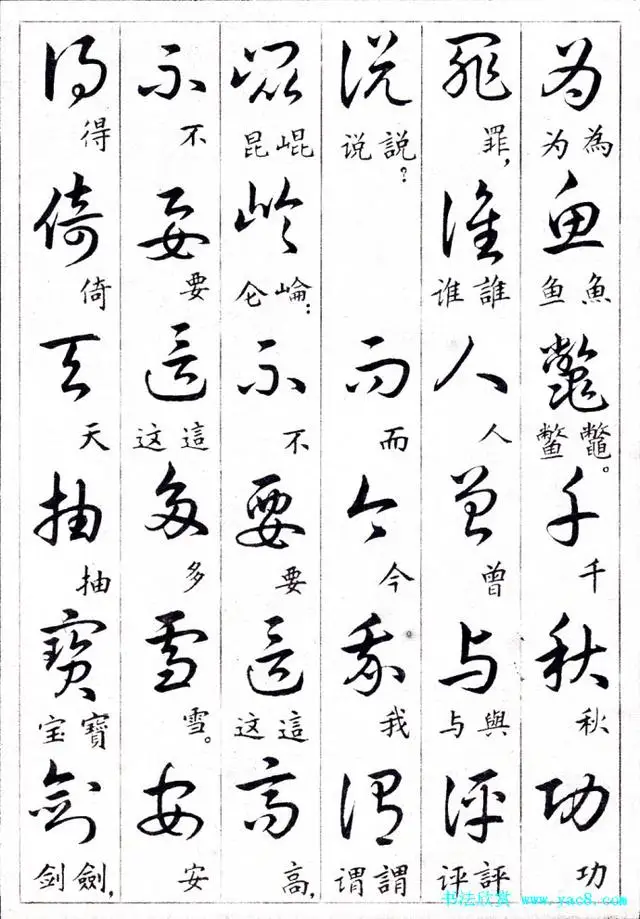 為魚鼈千秋功
為为 魚鱼 鼈鳖。 千 秋 功
罪誰人曾与評
罪, 誰谁 人 曾 與与 評评
說而今我謂
說说? 而 今 我 謂谓
崐崘不要這高
崐昆 崘仑: 不 要 這这 高,
不要這多雪安
不 要 這这 多 雪。 安
得倚天抽寶劍
得 倚 天 抽 寶宝 劍剑,
书法欣赏 www.yac8.com